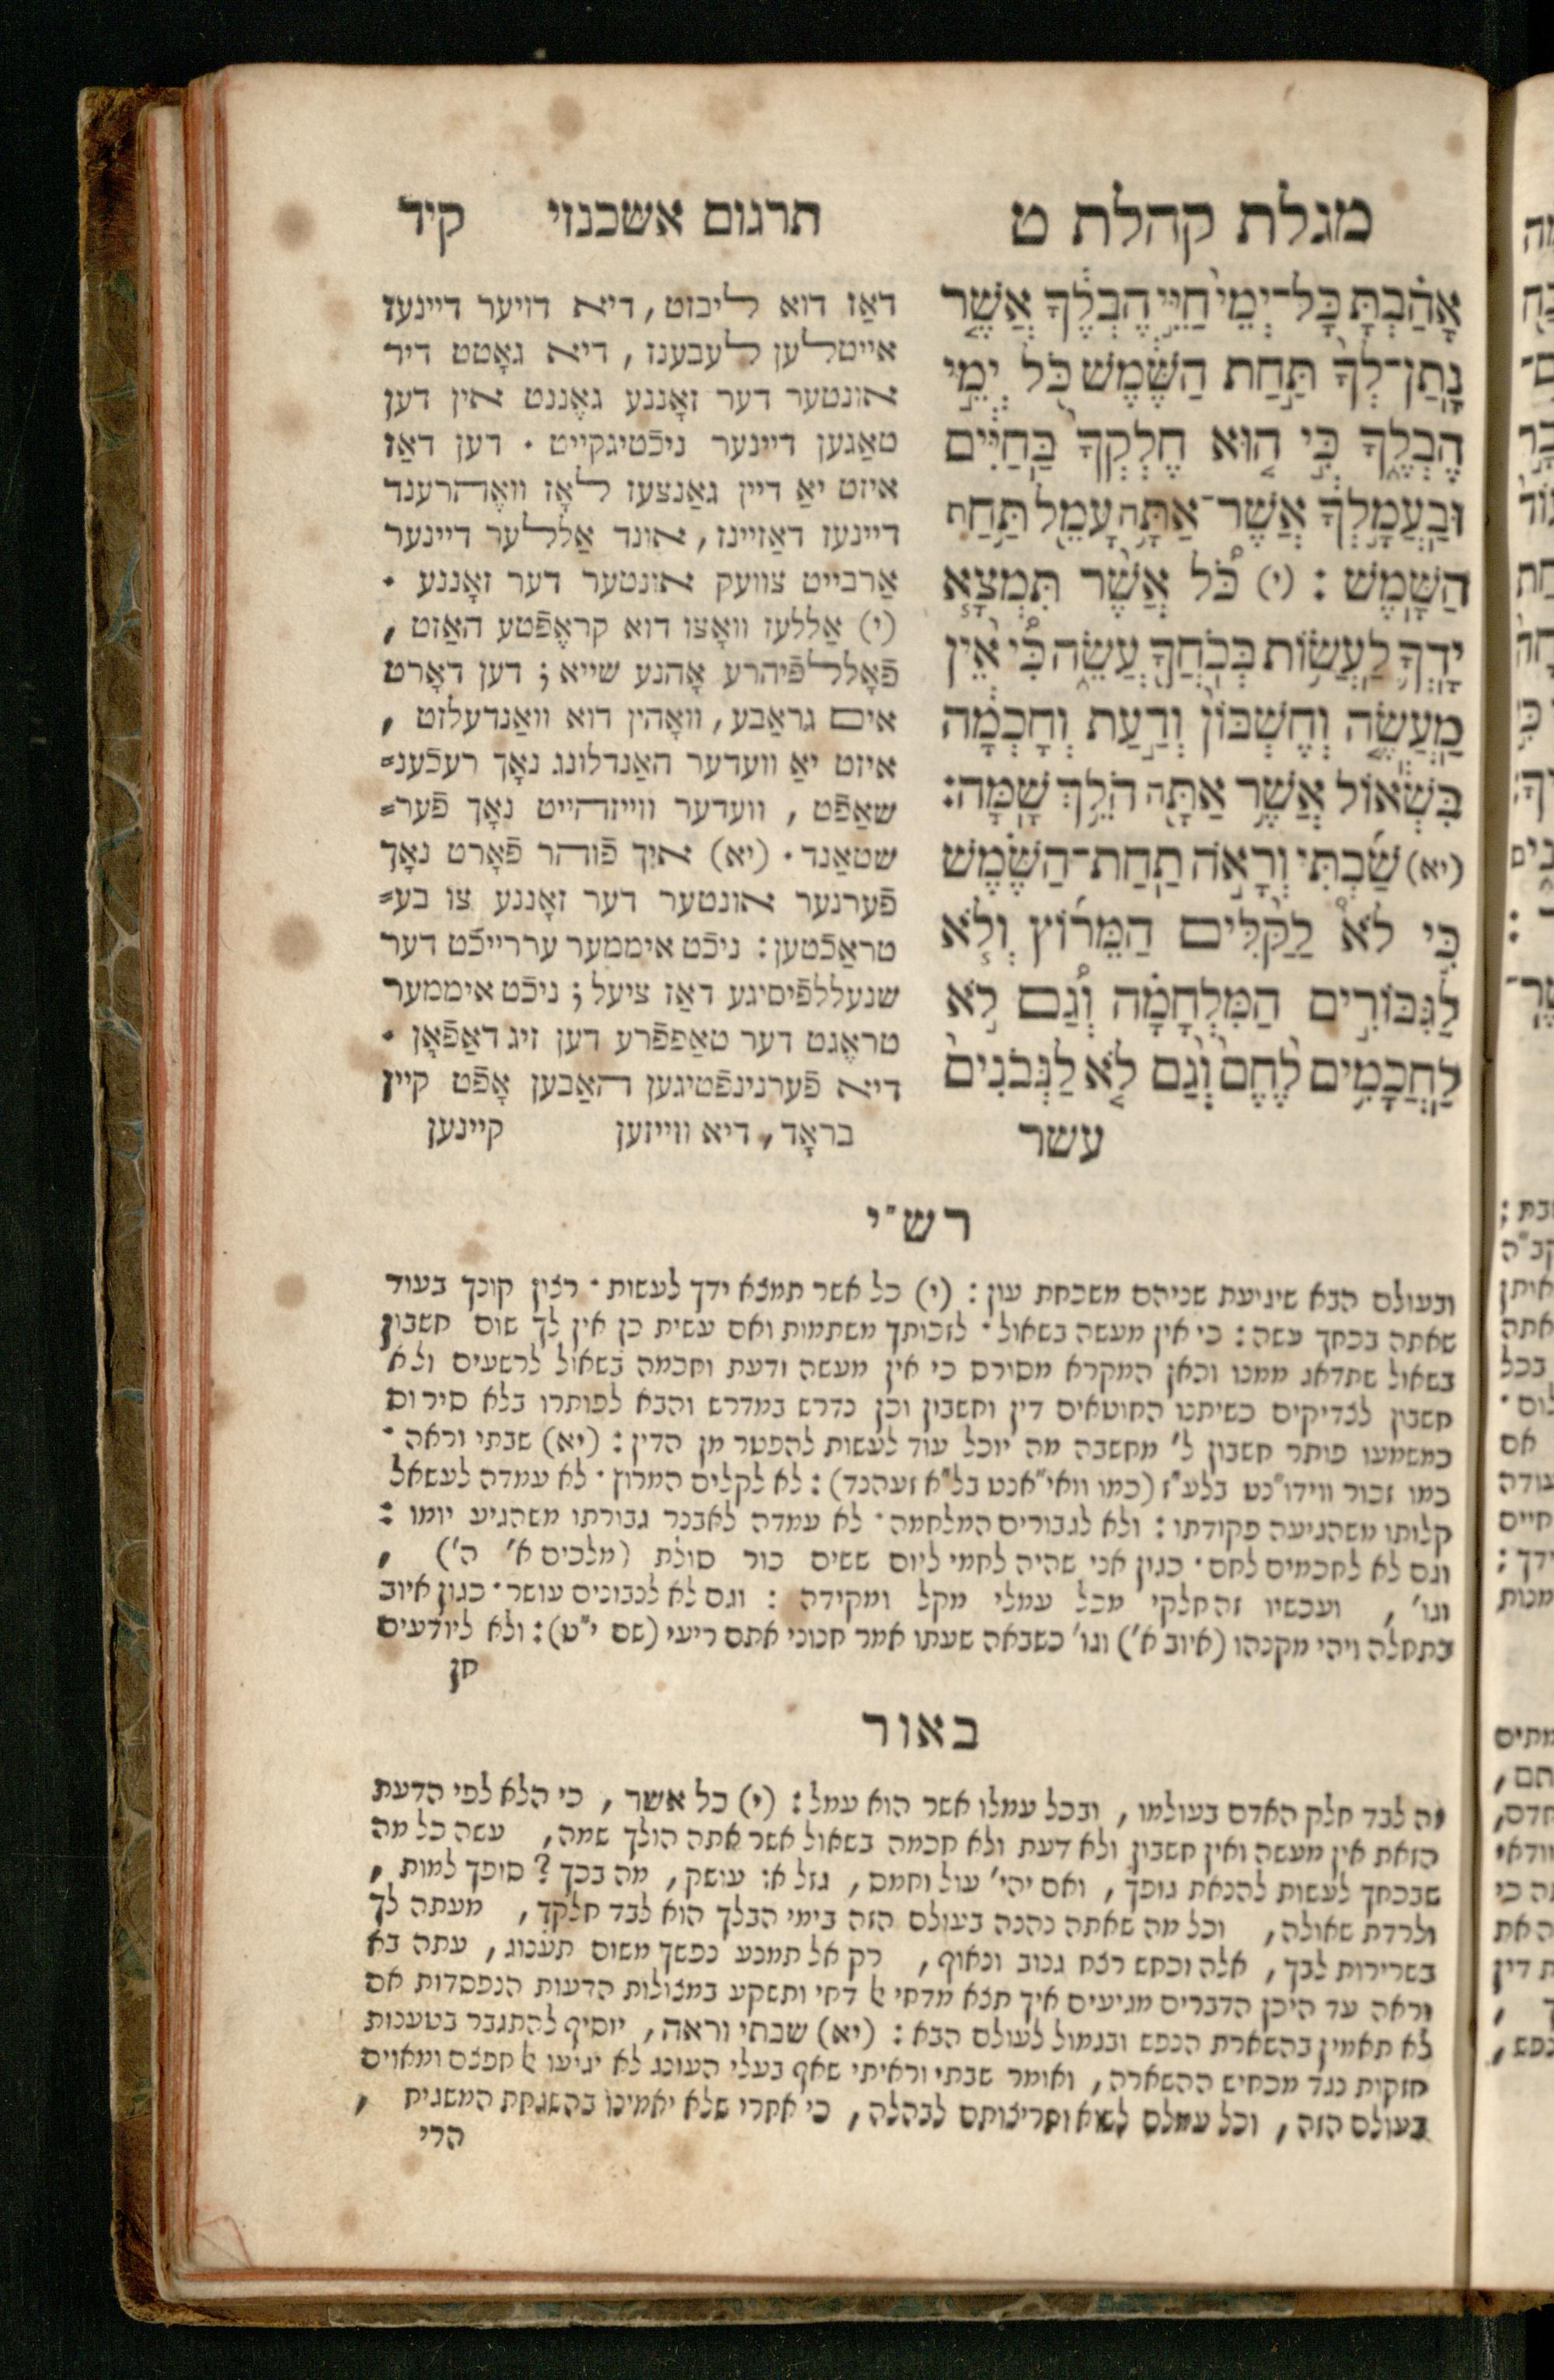 מגלת קהלת ט
אָהַבְתָּ כָּל־יְמֵי חַיֵּי הֶבְלֶךָ אֲשֶׁר
נָתַן־לְךָ תַּחַת הַשֶּׁמֶשׁ כֹּל יְמֵי
הֶבְלֶךָ כִּי הוּא חֶלְקְךָ בַּחַיִּים
וּבַעֲמָלְךָ אֲשֶׁר־אַתָּה עָמֵל תַּחַת
הַשָּׁמֶשׁ : (י) כֹּל אֲשֶׁר תִּמְצָא
יָדְךָ לַעֲשׂוֹת בְּכֹחֲךָ עֲשֵׂה כִּי אֵין
מַעֲשֶׂה וְחֶשְׁבּוֹן וְדַעַת וְחָכְמָה
בִּשְׁאוֹל אֲשֶׁר אַתָּה הֹלֵךְ שָׁמָּה:
(יא) שַׁבְתִּי וְרָאֹה תַחַת־הַשֶּׁמֶשׁ
כִּי לֹא לַקַּלִּים הַמֵּרוֹץ וְלֹא
לַגִּבּוֹרִים הַמִּלְחָמָה וְגַם לֹא
לַחֲכָמִים לֶחֶם וְגַם לֹא לַנְּבֹנִים
עשר
תרגום אשכנזי קיד
דאַז דוא ליבזט, דיא דויער דיינעז
אייטלען לעבענז, דיא גאָטט דיר
אונטער דער זאָננע גאֶננט אין דען
טאַגען דיינער ניכֿטיגקייט . דען דאַז
איזט יאַ דיין גאַנצעז לאָז וואֶהרענד
דיינעז דאַזיינז, אונד אַללער דיינער
אַרבייט צוועק אונטער דער זאָננע .
(י) אַללעז וואָצו דוא קראֶפֿטע האַזט ,
פֿאָללפֿיהרע אָהנע שייא ; דען דאָרט
אים גראַבע, וואָהין דוא וואַנדעלזט ,
איזט יאַ וועדער האַנדלונג נאָך רעכֿענ=
שאַפֿט , וועדער ווייזהייט נאָך פֿער=
שטאַנד. (יא) איך פֿוהר פֿאָרט נאָך
פֿערנער אונטער דער זאָננע צו בע=
טראַכֿטען: ניכֿט איממער עררייכֿט דער
שנעללפֿיסיגע דאַז ציעל; ניכֿט איממער
טראֶגט דער טאַפפֿרע דען זיג דאַפֿאָן .
דיא פֿערנינפֿטיגען האַבען אָפֿט קיין
בראָד, דיא ווייזען קיינען
רש״י
ובעולם הבא שיגיעת שניהם משכחת עון: (י) כל אשר תמצא ידך לעשות . רצון קונך בעוד
שאתה בכחך עשה: כי אין מעשה בשאול . לזכותך משתמות ואם עשית כן אין לך שום חשבון
בשאול שתדאג ממנו וכאן המקרא מסורס כי אין מעשה ודעת וחכמה בשאול לרשעים ולא
חשבון לצדיקים כשיתנו החוטאים דין וחשבון וכן נדרש במדרש והבא לפותרו בלא סירום
כמשמעו פותר חשבון ל׳ מחשבה מה יוכל עוד לעשות להפטר מן הדין: (יא) שבתי וראה .
כמו זכור ווידו״נט בלע״ז (כמו וואי״אנט בל״א זעהנד): לא לקלים המרוץ . לא עמדה לעשאל
קלותו משהגיעה פקודתו: ולא לגבורים המלחמה . לא עמדה לאבנר גבורתו משהגיע יומו :
וגם לא לחכמים לחם . כגון אני שהיה לחמי ליום ששים כור סולת (מלכים א׳ ה׳) ,
וגו׳ , ועכשיו זה חלקי מכל עמלי מקל ומקידה : וגם לא לנבונים עושר . כגון איוב
בתחלה ויהי מקנהו (איוב א׳) וגו׳ כשבאה שעתו אמר חנוני אתם ריעי (שם י״ט): ולא ליודעים
חן
באור
זה לבד חלק האדם בעולמו, ובכל עמלו אשר הוא עמל: (י) כל אשר , כי הלא לפי הדעת
הזאת אין מעשה ואין חשבון ולא דעת ולא חכמה בשאול אשר אתה הולך שמה, עשה כל מה
שבכחך לעשות להנאת גופך, ואם יהי׳ עול וחמס, גזל או עושק, מה בכך? סופך למות ,
ולרדת שאולה, וכל מה שאתה נהנה בעולם הזה בימי הבלך הוא לבד חלקך, מעתה לך
בשרירות לבך, אלה וכחש רצח גנוב ונאוף, רק אל תמנע נפשך משום תענוג, עתה בא
וראה עד היכן הדברים מגיעים איך תצא מדחי אל דחי ותשקע במצולות הדעות הנפסדות אם
לא תאמין בהשארת הנפש ובגמול לעולם הבא : (יא) שבתי וראה, יוסיף להתגבר בטענות
חזקות נגד מכחיש ההשארה, ואומר שבתי וראיתי שאף בעלי העונג לא יגיעו אל חפצם ומאוים
בעולם הזה, וכל עמלם לשוא וחריצותם לבהלה, כי אחרי שלא יאמינו בהשגחת המשגיח ,
הרי